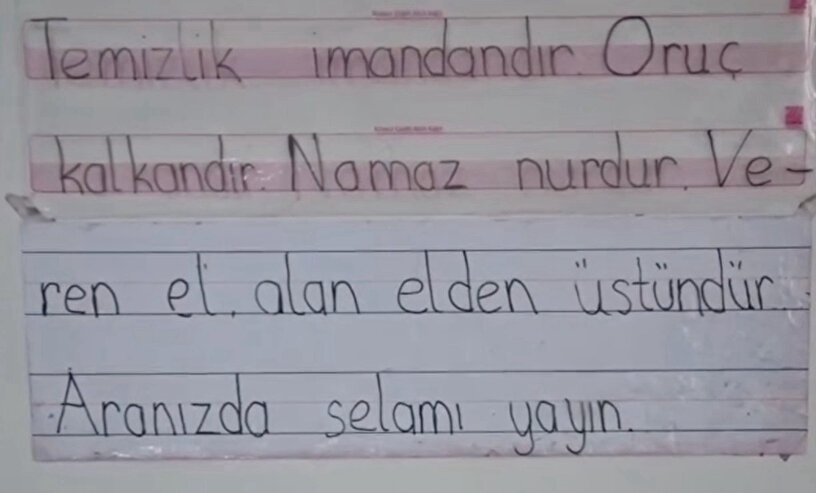 Temizlik imandandır. Oruç
kalkandır. Namaz nurdur. Ve-
ren el, alan elden üstündür.
Aranızda selamı yayın.